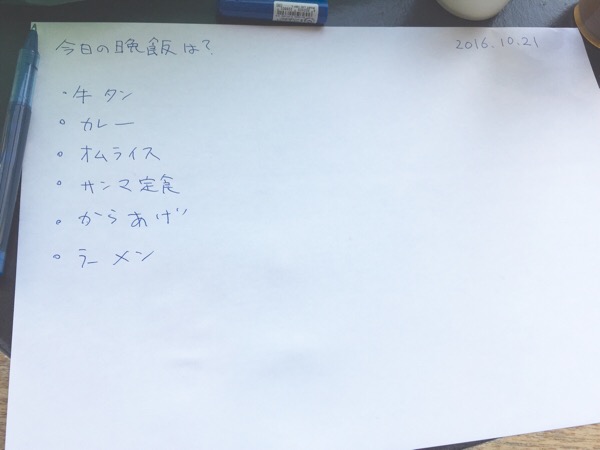 今日の晩飯は? 2016.10.21
・牛タン
・カレー
・オムライス
・サンマ定食
・からあげ
・ラーメン